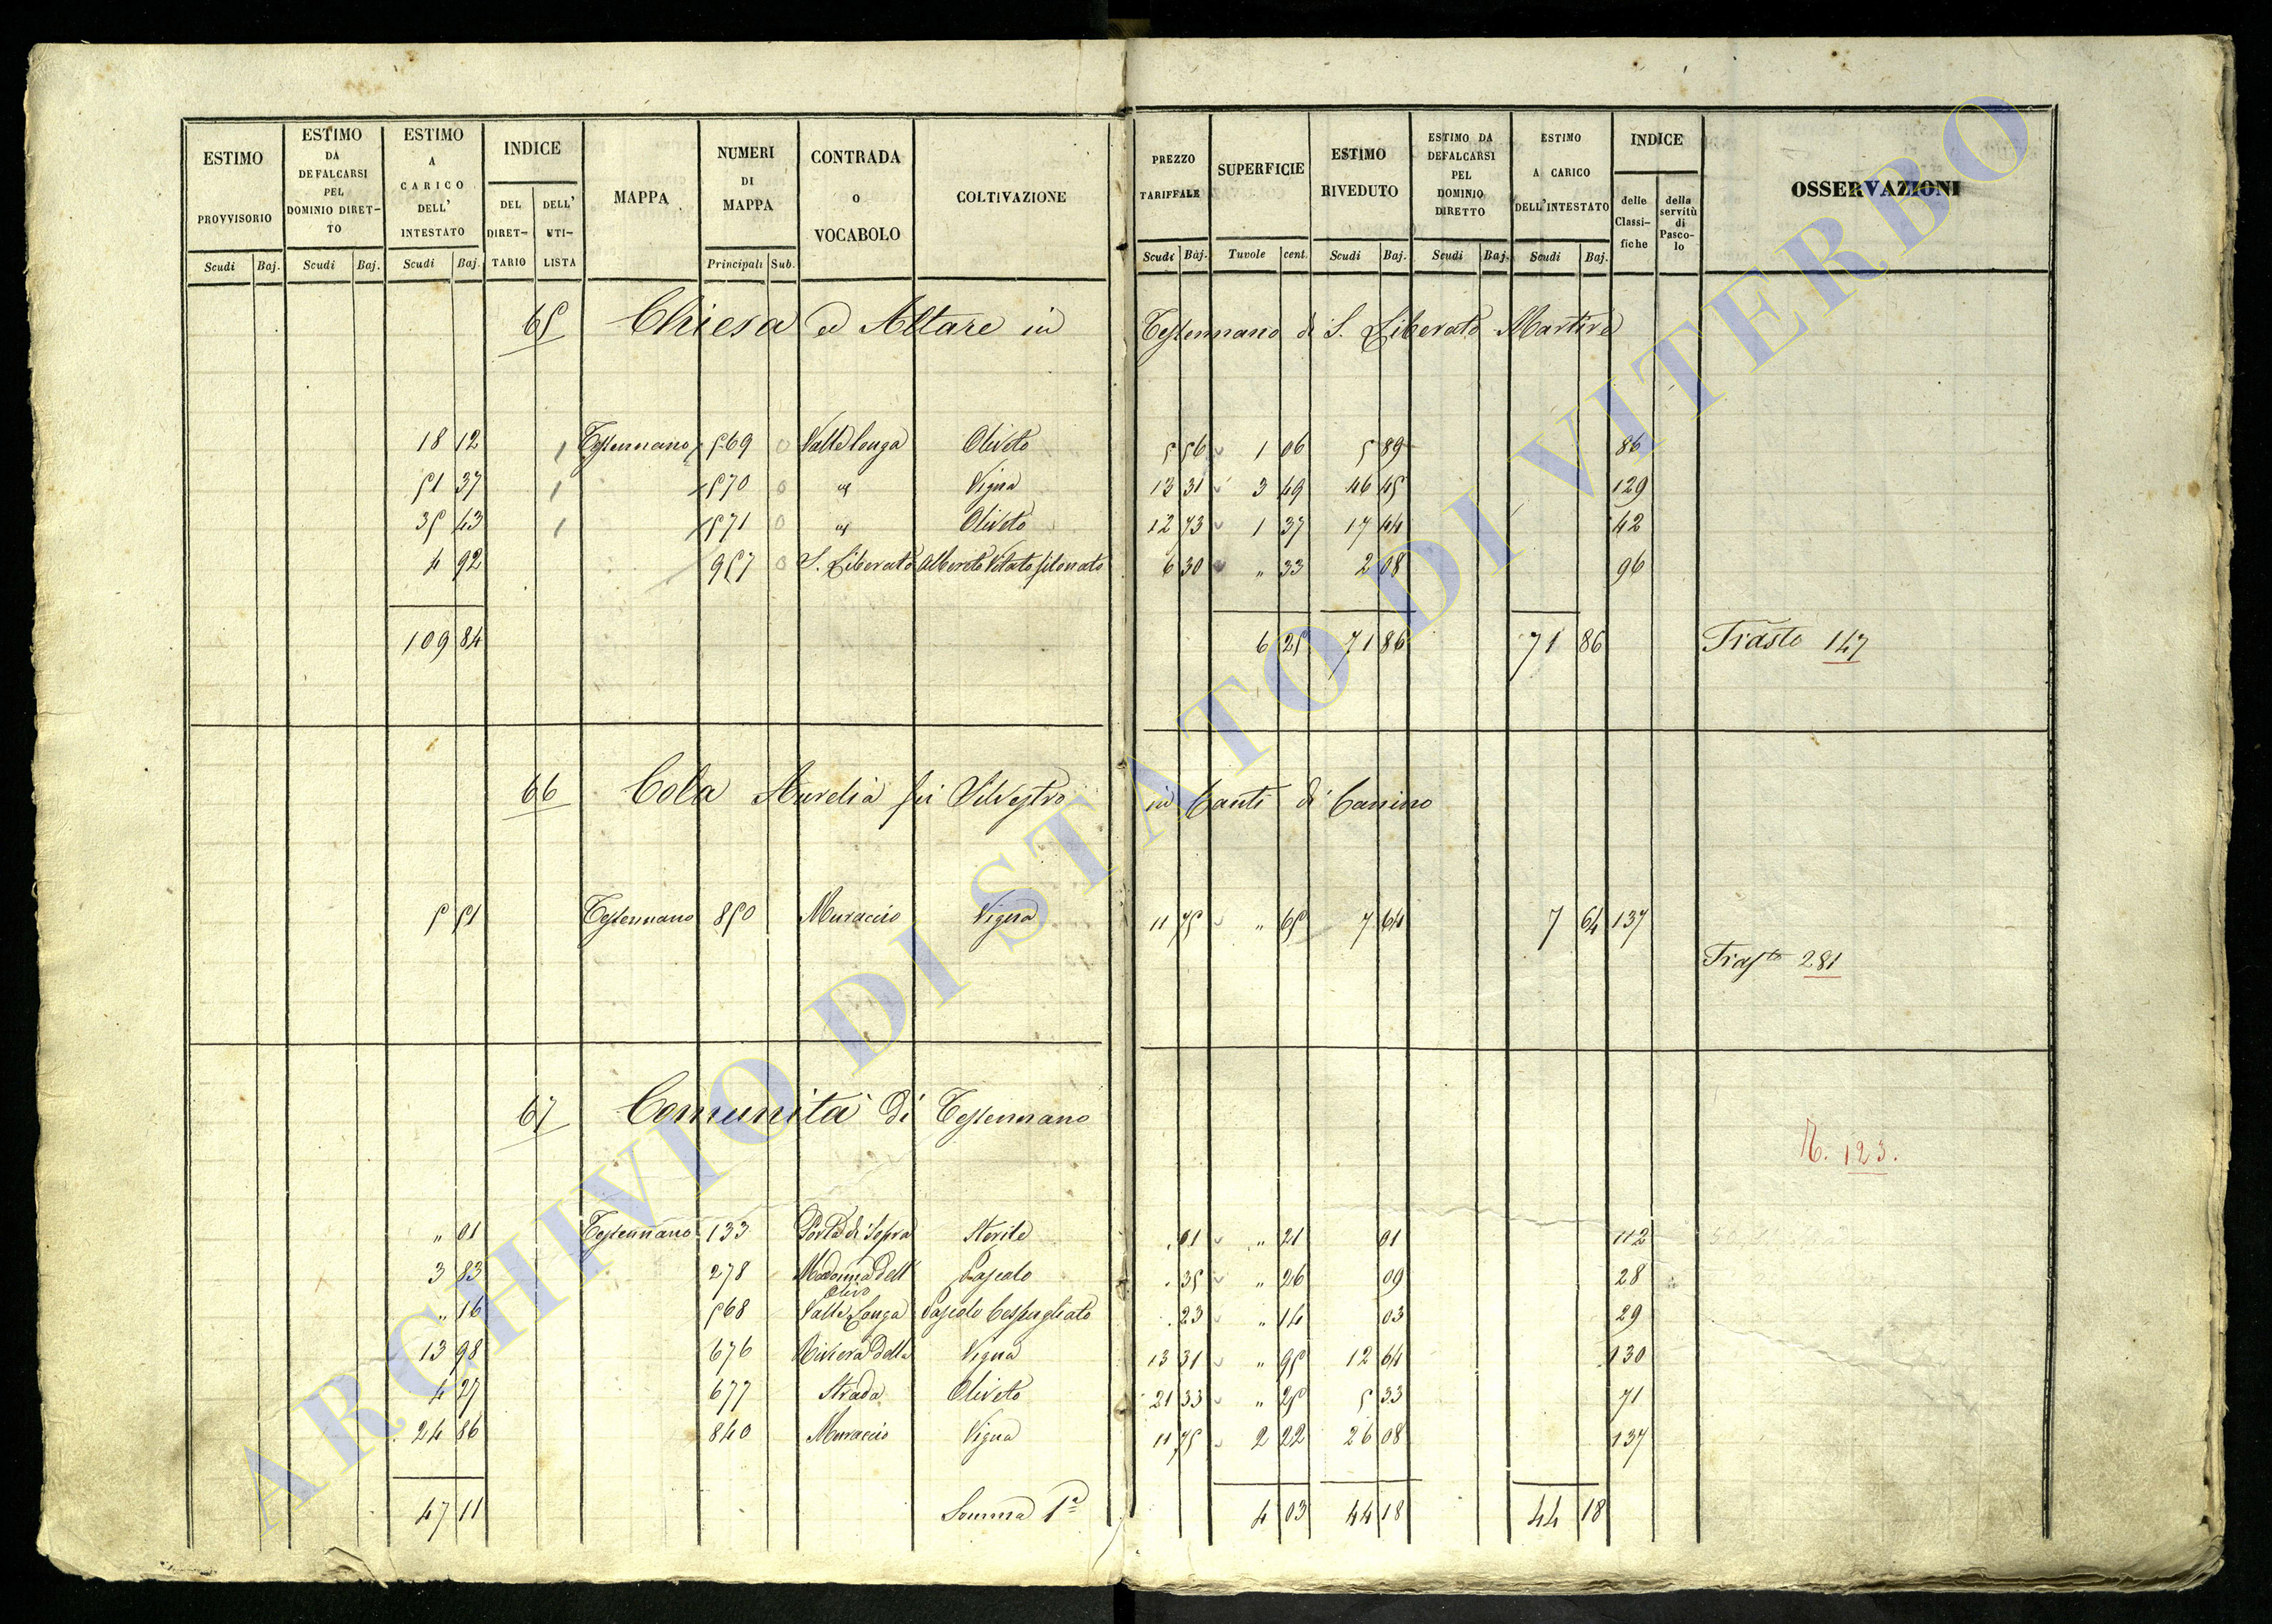 ESTIMO PROVVISORIO Scudi Baj.
ESTIMO DA DEFALCARSI PEL DOMINIO DIRETTO Scudi Baj.
ESTIMO A CARICO DELL' INTESTATO Scudi Baj.
INDICE DEL DIRETTARIO DELL' UTILISTA
MAPPA
NUMERI DI MAPPA Principali Sub.
CONTRADA o VOCABOLO
COLTIVAZIONE
PREZZO TARIFFALE Scudi Baj.
SUPERFICIE Tavole cent.
ESTIMO RIVEDUTO Scudi Baj.
ESTIMO DA DEFALCARSI PEL DOMINIO DIRETTO Scudi Baj.
ESTIMO A CARICO DELL'INTESTATO Scudi Baj.
INDICE delle Classifiche della servitù di Pascolo
OSSERVAZIONI
65 Chiesa ed Altare in Tessennano di S. Liberato Martire
18 12 Tessennano 569 0 Valle longa Oliveto 5 56 1 06 5 89 86
51 37 570 0 id Vigna 13 31 3 49 46 45 129
35 43 571 0 id Oliveto 12 73 1 37 17 44 42
4 92 957 0 S. Liberato Alberato Vitato 6 30 " 33 2 08 96
109 84 6 25 71 86 71 86 Trasto 147
66 Cola Aurelia fù Silvestro in Canti di Canino
5 51 Tessennano 850 Muraccio Vigna 11 75 " 65 7 64 7 64 137
Trasto 281
67 Comunità di Tessennano
R. 123.
" 01 Tessennano 133 Porta di Sopra Sterile . 01 " 21 01 112
3 83 278 Madonna dell' Olivo Pascolo . 35 " 26 09 28
" 16 568 Valle Longa Pascolo Cespugliato . 23 " 14 03 29
13 98 676 Riviera della Vigna 13 31 " 95 12 64 130
4 27 677 Strada Oliveto 21 33 " 25 5 33 71
24 86 840 Muraccio Vigna 11 75 2 22 26 08 137
47 11 Somma 1a 4 03 44 18 44 18
ARCHIVIO DI STATO DI VITERBO